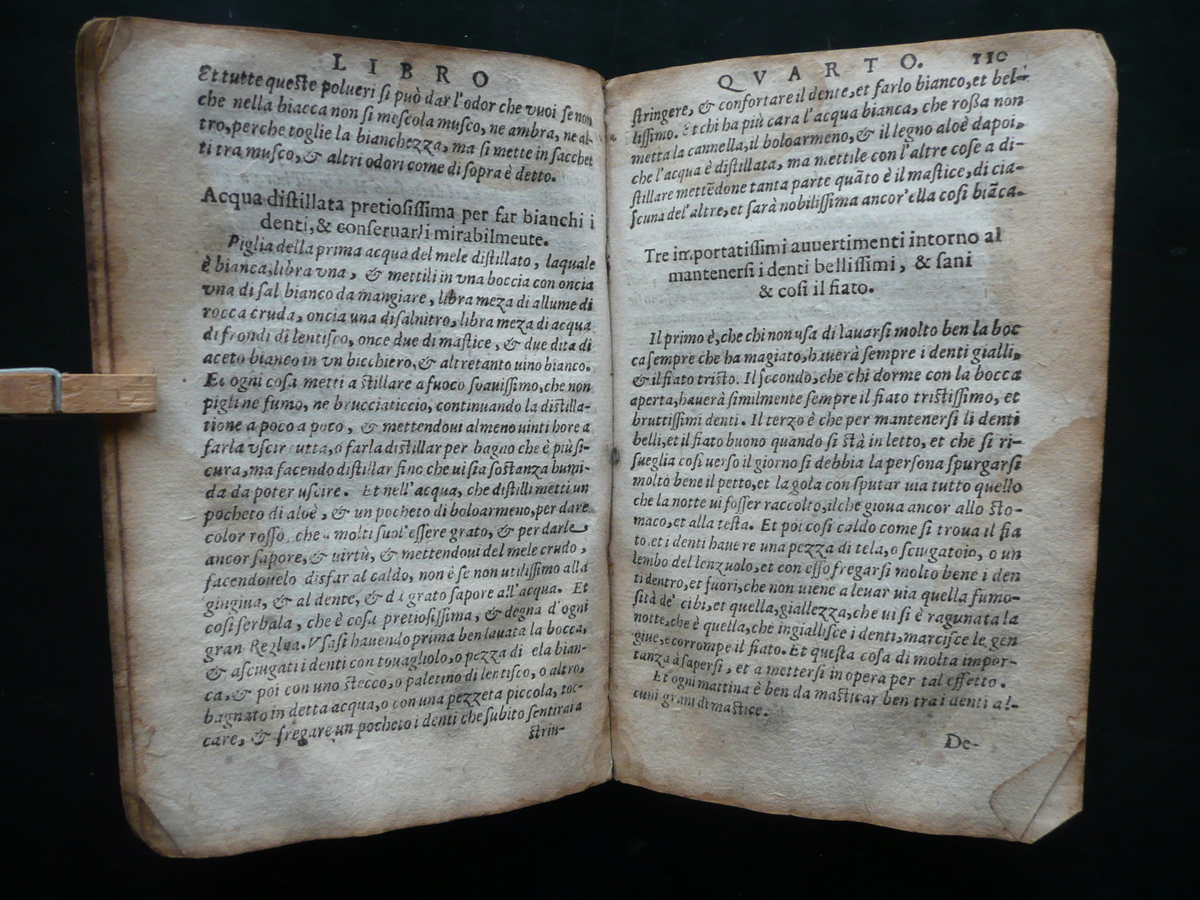 LIBRO
Et tutte queste polueri si può dar l'odor che vuoi se non
che nella biacca non si mescola musco, ne ambra, ne al-
tro, perche toglie la bianchezza, ma si mette in sacchet
ti tra musco, & altri odori come di sopra è detto.
Acqua distillata pretiosissima per far bianchi i
denti, & conseruarli mirabilmeute.
Piglia della prima acqua del mele distillato, laquale
è bianca, libra vna, & mettili in vna boccia con oncia
vna di sal bianco da mangiare, libra meza di allume di
rocca cruda, oncia una di salnitro, libra meza di acqua
di frondi di lentisco, once due di mastice, & due dita di
aceto bianco in vn bicchiero, & altretanto uino bianco.
Et ogni cosa metti a stillare a fuoco suauissimo, che non
pigli ne fumo, ne brucciaticcio, continuando la distilla-
tione a poco a poco, & mettendoui almeno uinti hore a
farla vscir tutta, o farla distillar per bagno che è più si-
cura, ma facendo distillar fino che ui sia sostanza humi-
da da poter uscire. Et nell'acqua, che distilli metti un
pocheto di aloè, & un pocheto di boloarmeno, per dare
color rosso, che a molti suol'essere grato, & per darle
ancor sapore, & uirtù, & mettendoui del mele crudo,
facendouelo disfar al caldo, non è se non utilissimo alla
gingiua, & al dente, & dà grato sapore all'acqua. Et
cosi serbala, che è cosa pretiosissima, & degna d'ogni
gran Regina. Vsasi hauendo prima ben lauata la bocca,
& asciugati i denti con touagliolo, o pezza di ela bian-
ca, & poi con uno stecco, o paletino di lentisco, o altro,
bagnato in detta acqua, o con una pezzeta piccola, toc-
care, & fregare un pocheto i denti che subito sentirai a
strin-
QVARTO. 110
stringere, & confortare il dente, et farlo bianco, et bel-
lissimo. Et chi ha più cara l'acqua bianca, che rossa non
metta la cannella, il boloarmeno, & il legno aloè dapoi,
che l'acqua è distillata, ma mettile con l'altre cose a di-
stillare mettẽdone tanta parte quãto è il mastice, di cia-
scuna del'altre, et sarà nobilissima ancor'ella cosi biãca.
Tre importatissimi auuertimenti intorno al
mantenersi i denti bellissimi, & sani
& cosi il fiato.
Il primo è, che chi non usa di lauarsi molto ben la boc
ca sempre che ha magiato, hauerà sempre i denti gialli,
& il fiato tristo. Il secondo, che chi dorme con la bocca
aperta, hauerà similmente sempre il fiato tristissimo, et
bruttissimi denti. Il terzo è che per mantenersi li denti
belli, et il fiato buono quando si stà in letto, et che si ri-
sueglia cosi uerso il giorno si debbia la persona spurgarsi
molto bene il petto, et la gola con sputar uia tutto quello
che la notte ui fosser raccolto, ilche gioua ancor allo sto-
maco, et alla testa. Et poi cosi caldo come si troua il fia
to et i denti hauere una pezza di tela, o sciugatoio, o un
lembo del lenzuolo, et con esso fregarsi molto bene i den
ti dentro, et fuori, che non uiene a leuar uia quella fumo-
sità de' cibi, et quella, giallezza, che ui si è ragunata la
notte, che è quella, che ingiallisce i denti, marcisce le gen
giue, e corrompe il fiato. Et questa cosa di molta impor-
tanza à sapersi, et a mettersi in opera per tal effetto.
Et ogni mattina è ben da masticar ben tra i denti al-
cuni grani di mastice.
De-